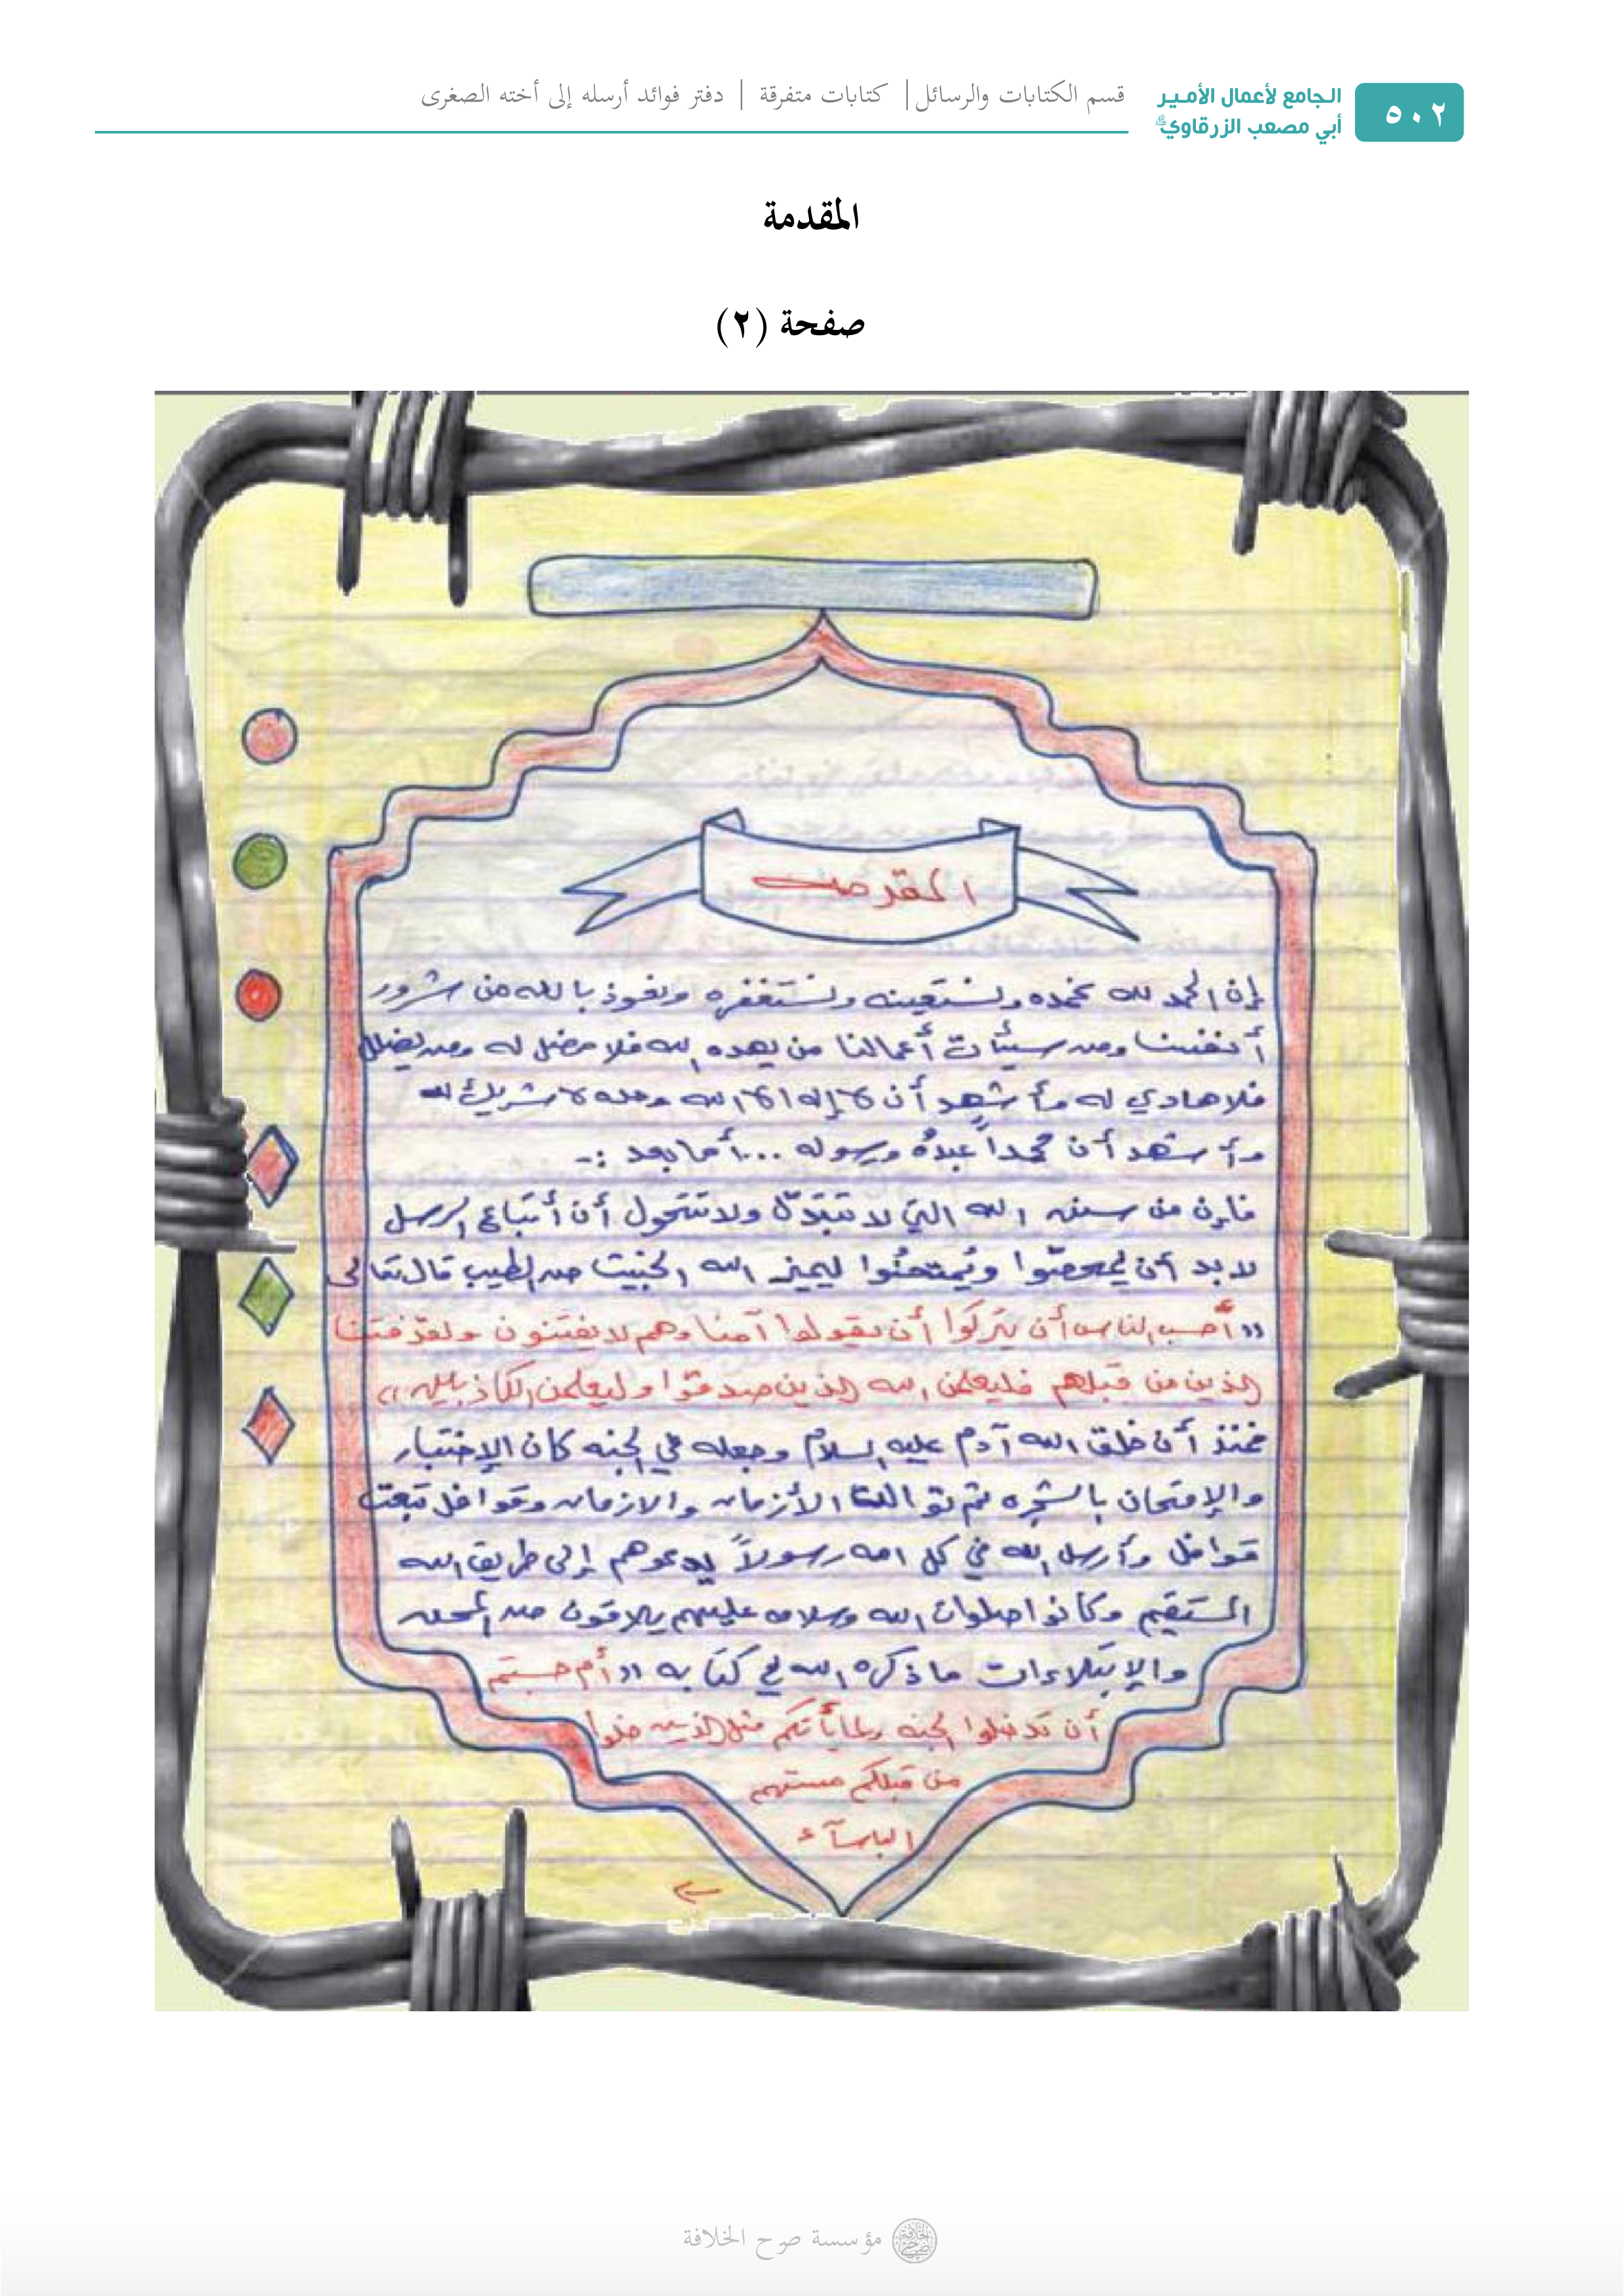 ٥٠٢
الجامع لأعمال الأمير
أبي مصعب الزرقاوي
قسم الكتابات والرسائل | كتابات متفرقة | دفتر فوائد أرسله إلى أخته الصغرى
المقدمة
صفحة (٢)
المقدمه
إن الحمد لله نحمده ونستعينه ونستغفره ونعوذ بالله من شرور
أنفسنا ومن سيئات أعمالنا من يهده الله فلا مضل له ومن يضلل
فلا هادي له وأشهد أن لا إله إلا الله وحده لا شريك له
وأشهد أن محمداً عبدهُ ورسوله ... أما بعد :-
فإن من سنن الله التي لا تتبدّل ولا تتحول أن أتباع الرسل
لا بد أن يمحصّوا ويُمتحنُوا ليميز الله الخبيث من الطيب قال تعالى
(( أحسب الناس أن يتركوا أن يقولوا آمنا وهم لا يفتنون ولقد فتنا
الذين من قبلهم فليعلمن الله الذين صدقوا وليعلمن الكاذبين ))
فمنذ أن خلق الله آدم عليه السلام وجعله في الجنه كان الإختبار
والإمتحان بالشجره ثم توالت الأزمان والازمان وقوافل تبعت
قوافل وأرسل الله في كل امه رسولاً يدعوهم إلى طريق الله
المستقيم وكانوا صلوات الله وسلامه عليهم يلاقون من المحن
والإبتلاءات ما ذكره الله في كتابه (( أم حسبتم
أن تدخلوا الجنه ولما يأتكم مثل الذين خلوا
من قبلكم مستهم
البأسآء
مؤسسة صرح الخلافة